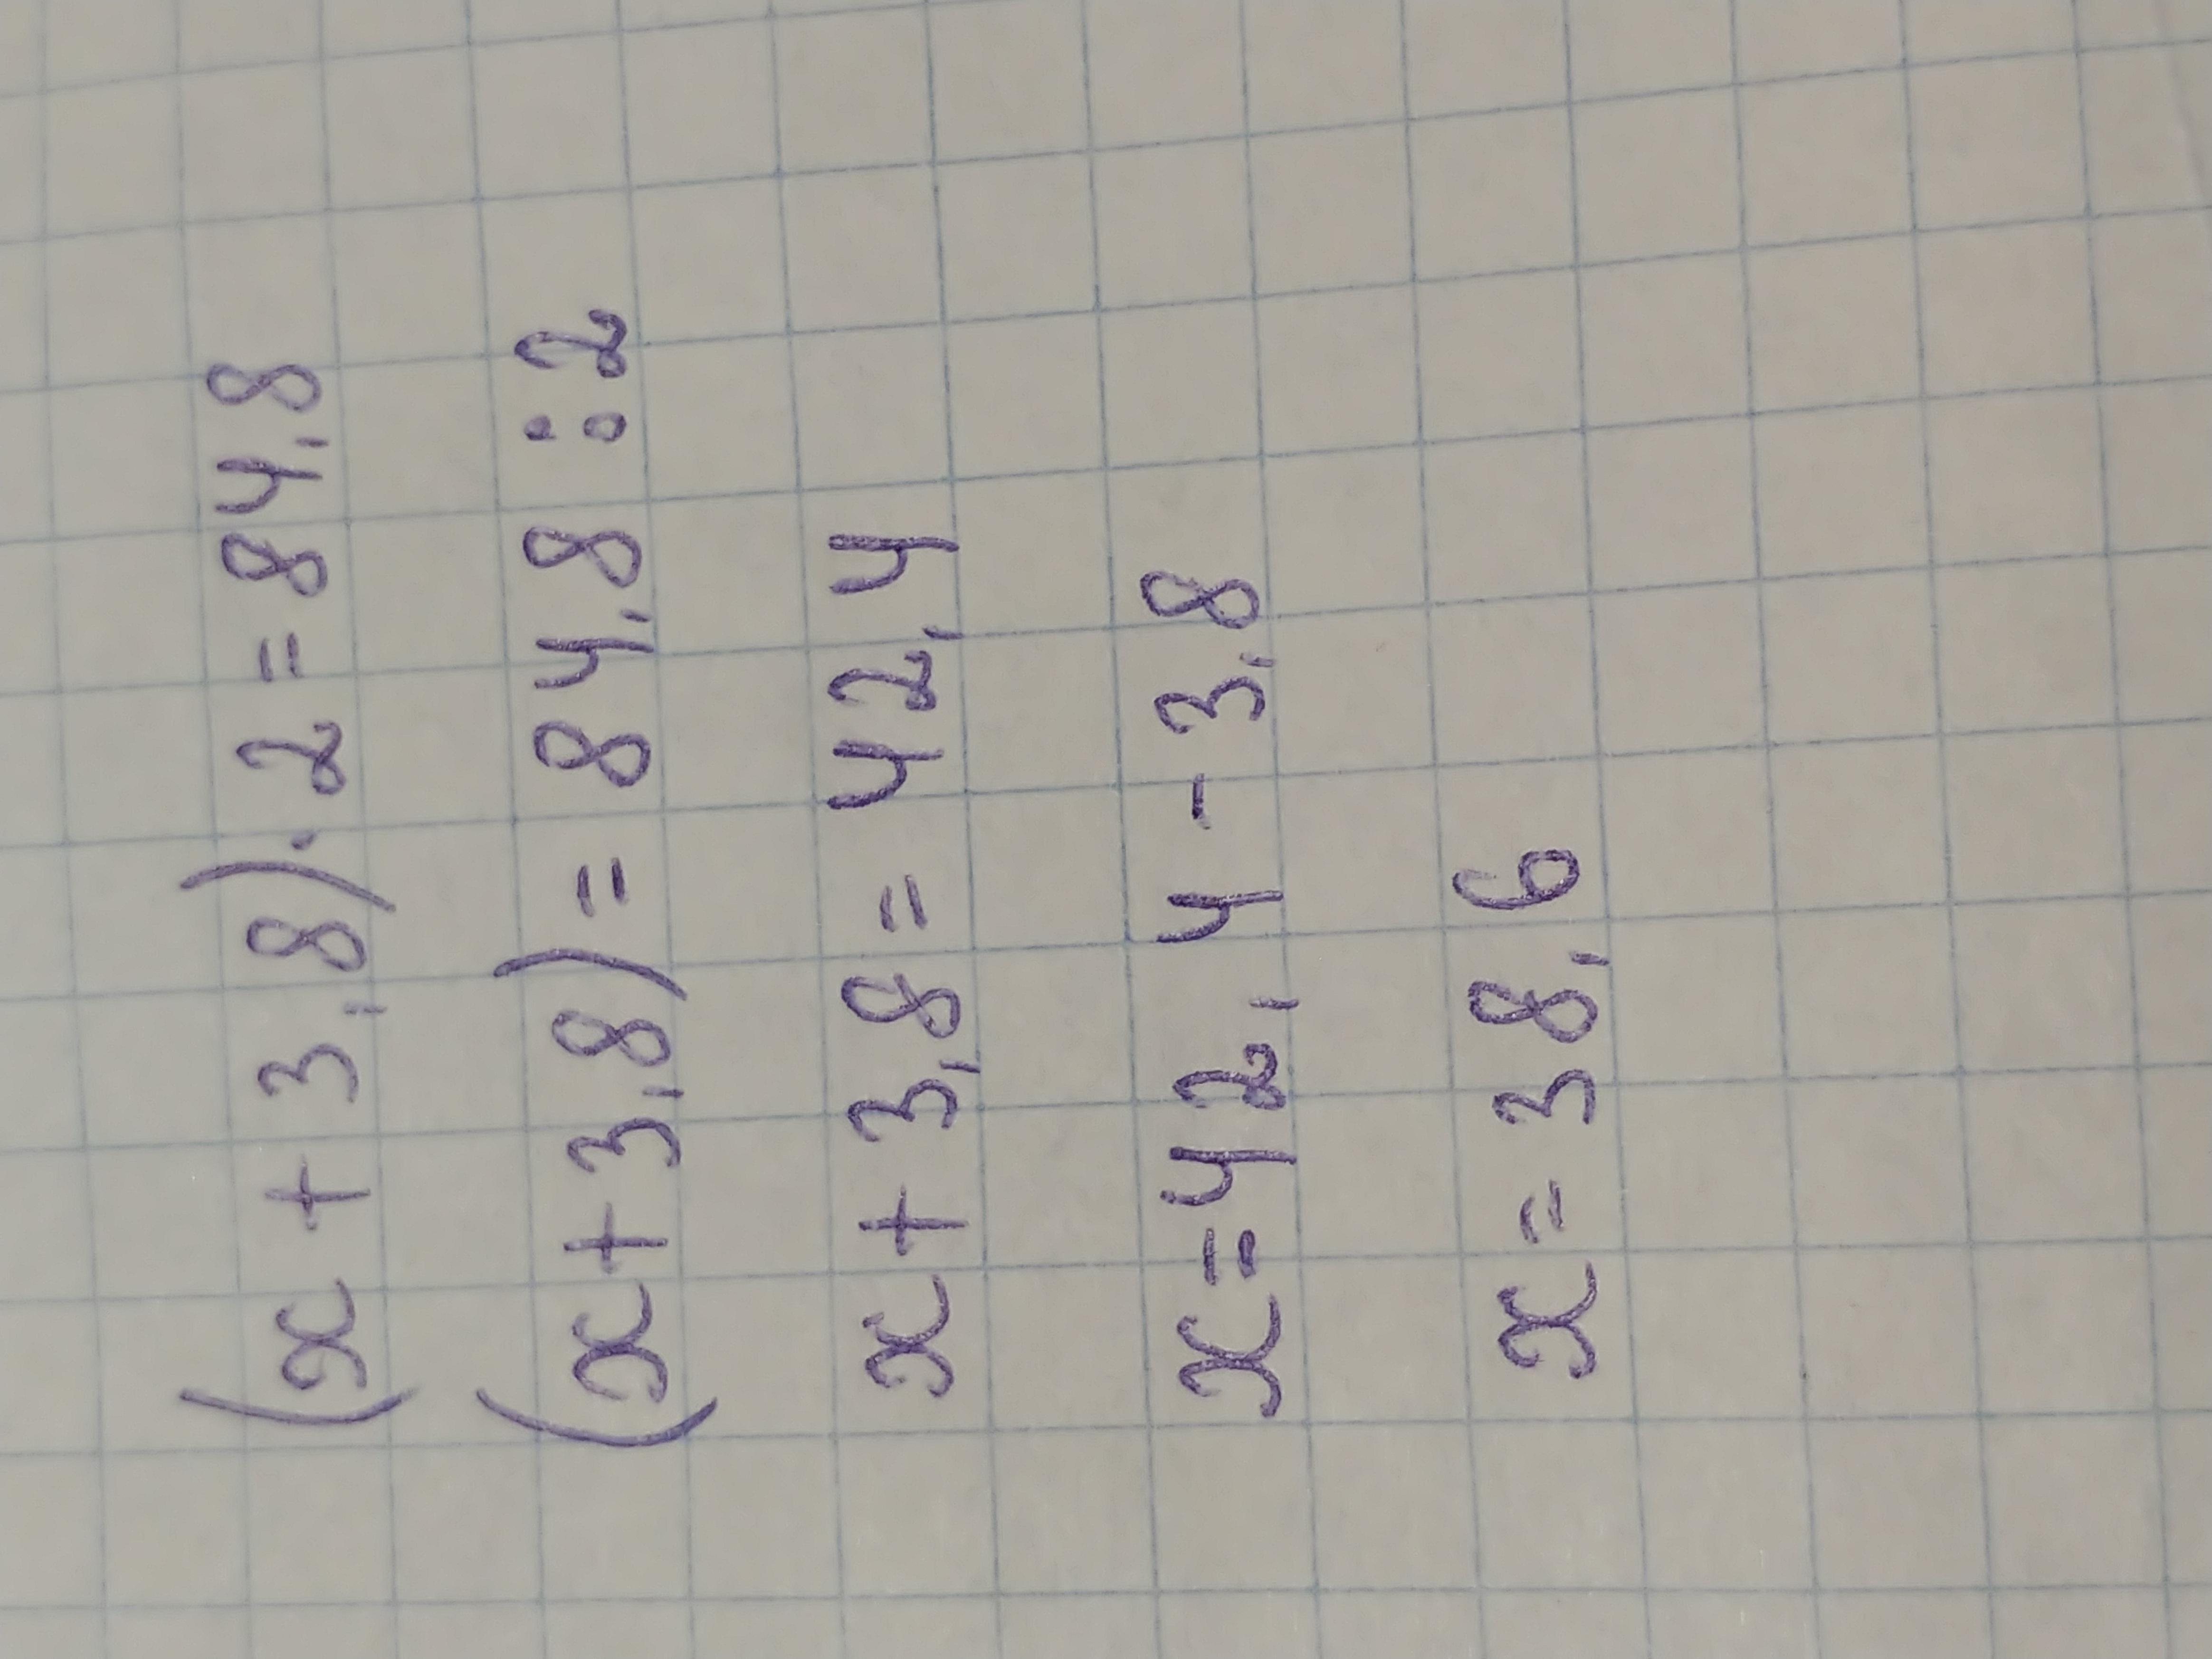 (x + 3,8) · 2 = 84,8
(x + 3,8) = 84,8 : 2
x + 3,8 = 42,4
x = 42,4 - 3,8
x = 38,6